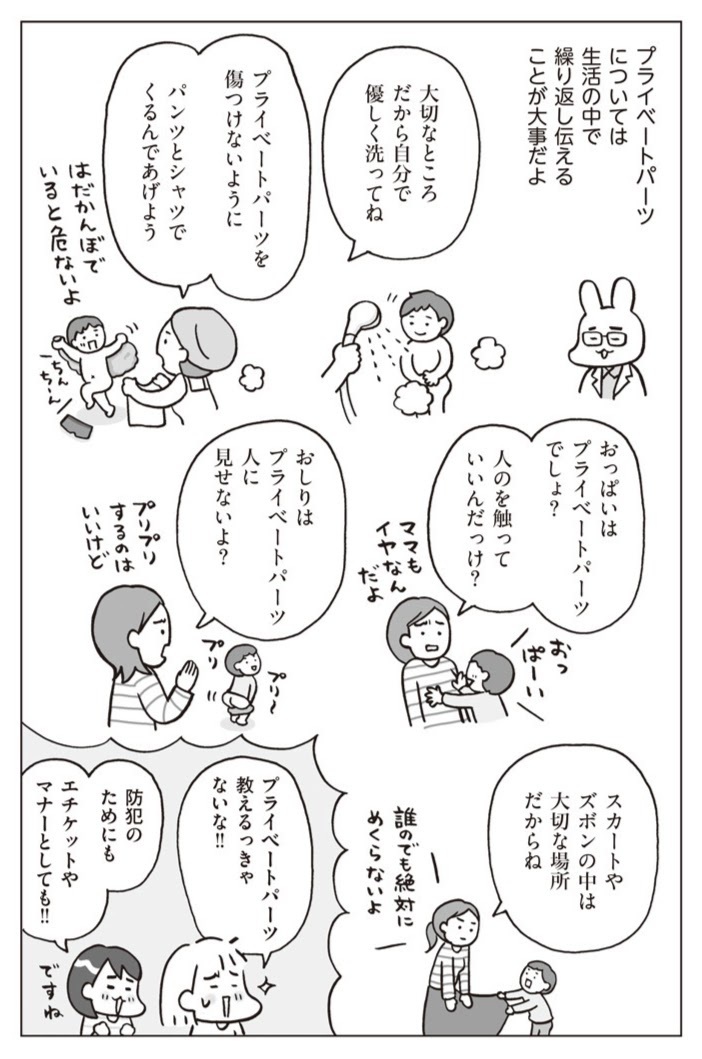 プライベートパーツ
については
生活の中で
繰り返し伝える
ことが大事だよ
大切なところ
だから自分で
優しく洗ってね
プライベートパーツを
傷つけないように
パンツとシャツで
くるんであげよう
はだかんぼで
いると危ないよ
ちんちーん
おっぱいは
プライベートパーツ
でしょ?
人のを触って
いいんだっけ?
ママも
イヤなん
だよ
おっ
ぱーい
おしりは
プライベートパーツ
人に
見せないよ?
プリプリ
するのは
いいけど
プリ
プリ〜
スカートや
ズボンの中は
大切な場所
だからね
誰のでも絶対に
めくらないよ
プライベートパーツ
教えるっきゃ
ないな!!
防犯の
ためにも
エチケットや
マナーとしても!!
ですね